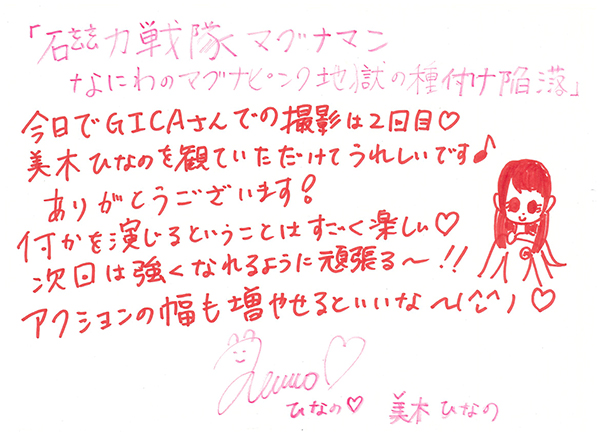 「磁力戦隊マグナマン
なにわのマグナピンク地獄の種付け陥落」
今日でGICAさんでの撮影は2回目♡
美木ひなのを観ていただけてうれしいです♪
ありがとうございます!
何かを演じるということはすごく楽しい♡
次回は強くなれるように頑張る〜!!
アクションの幅も増やせるといいな〜(^^)♡
ひなの♡ 美木ひなの